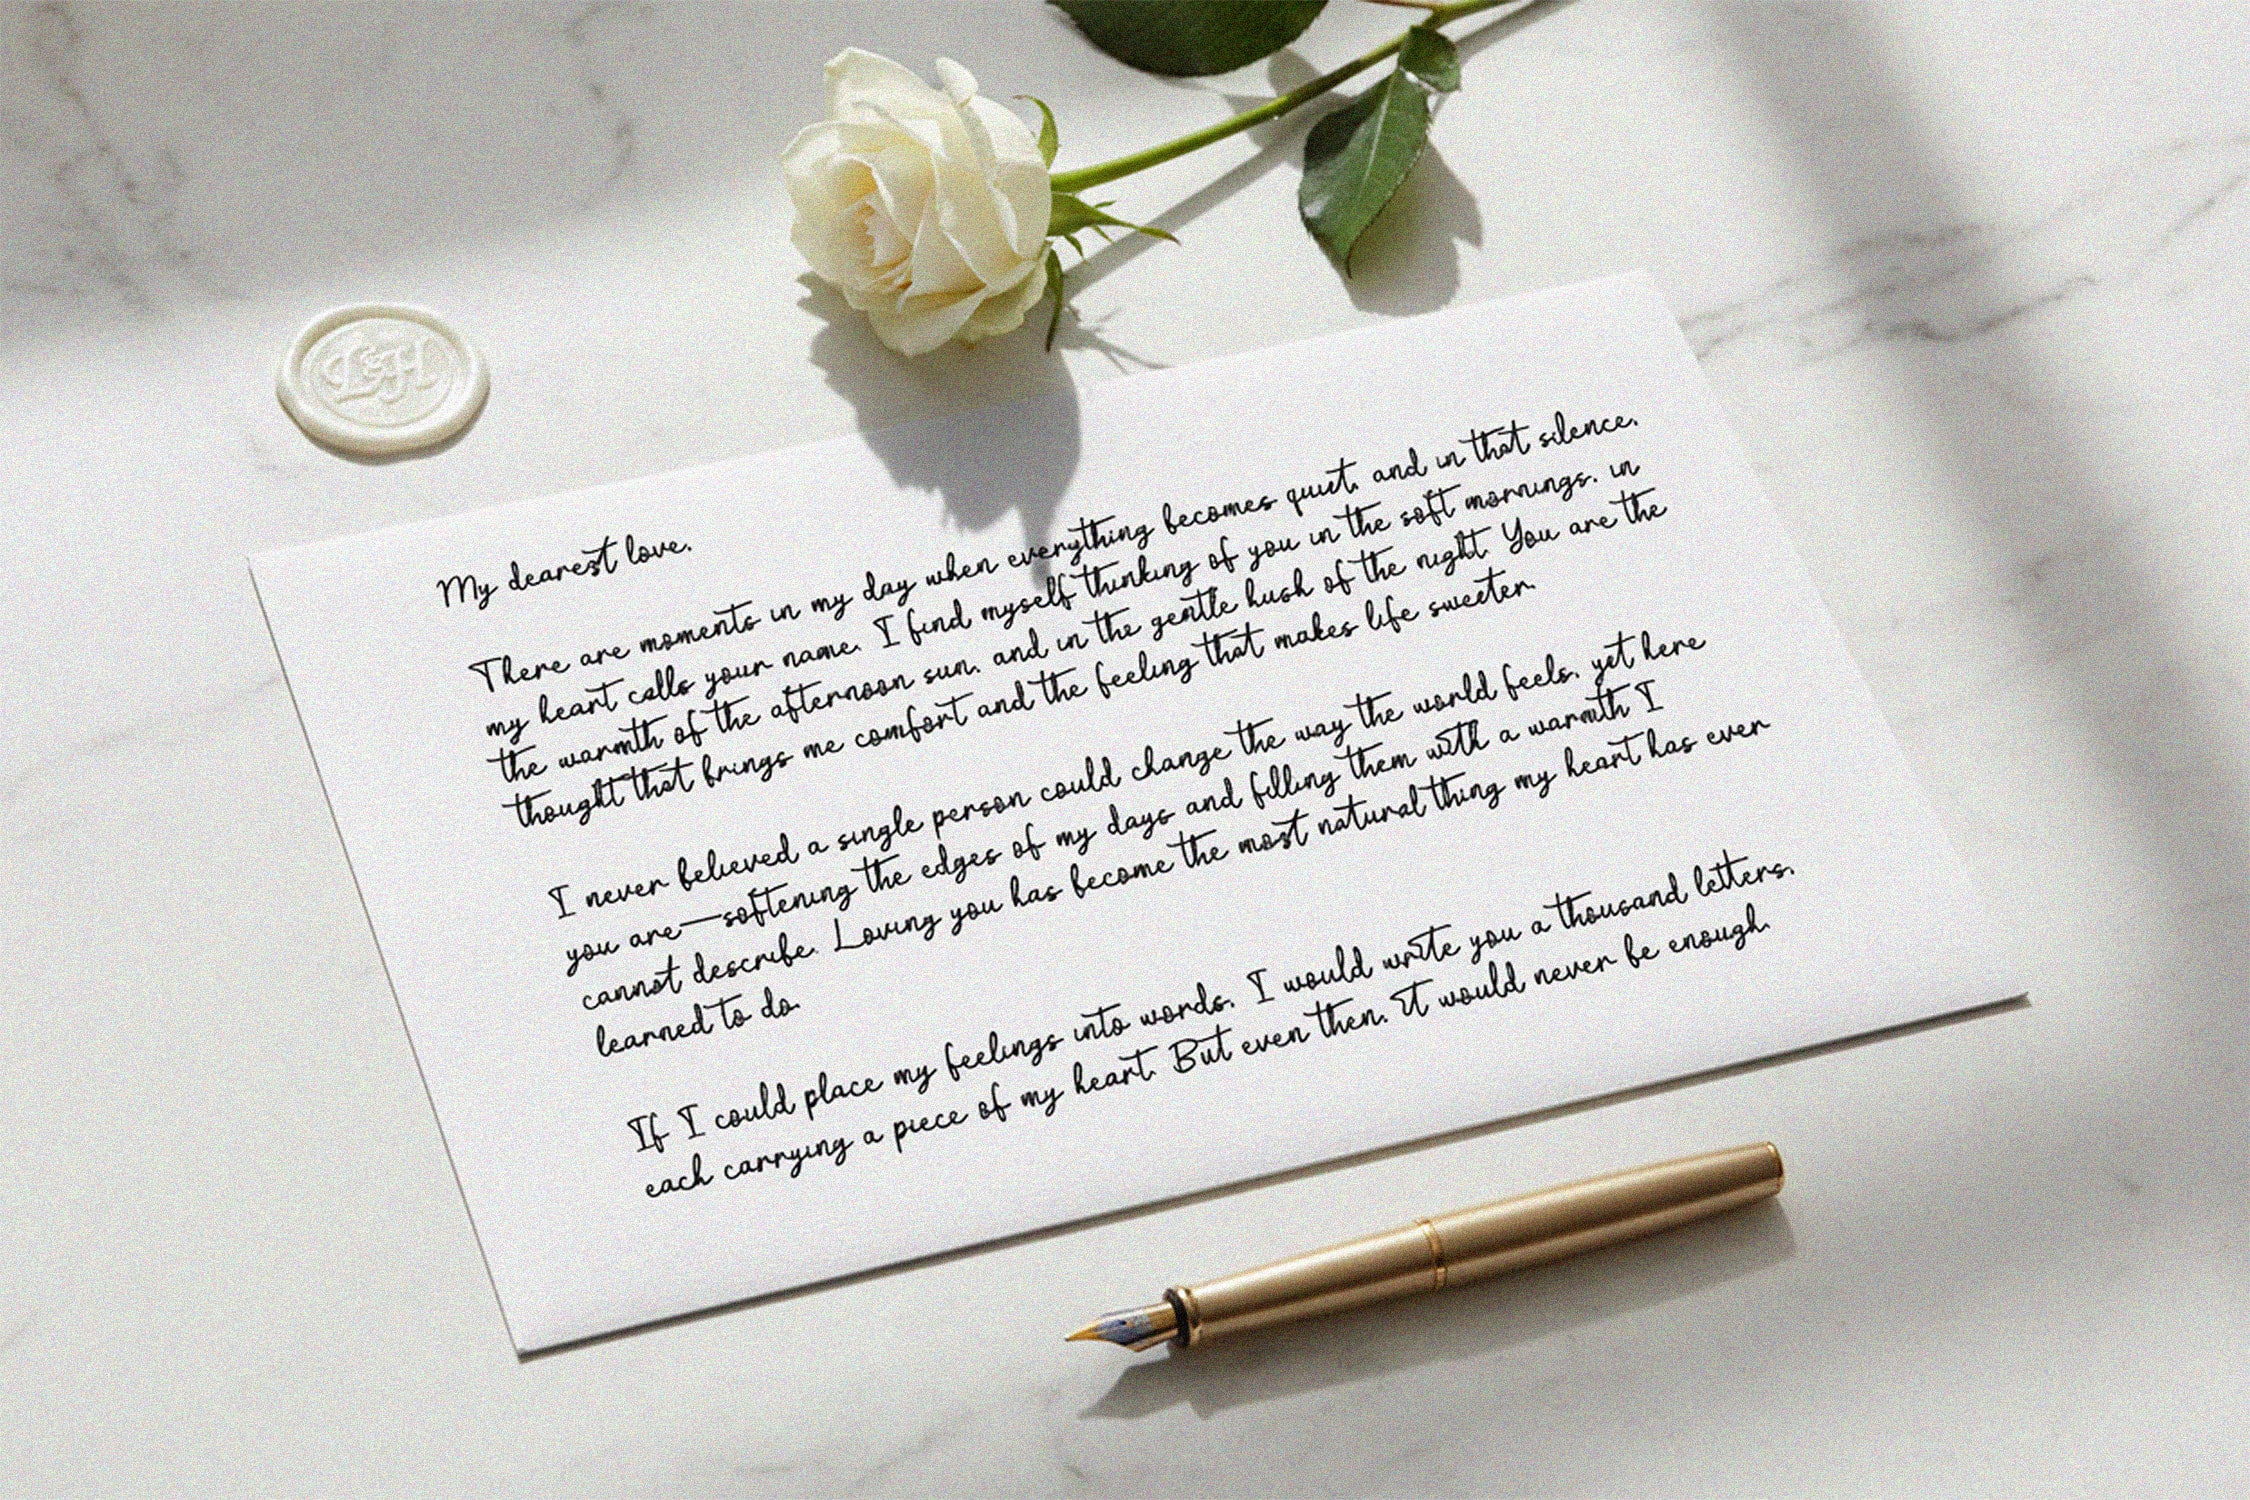 L&H
My dearest love,
There are moments in my day when everything becomes quiet, and in that silence,
my heart calls your name. I find myself thinking of you in the soft mornings, in
the warmth of the afternoon sun, and in the gentle hush of the night. You are the
thought that brings me comfort and the feeling that makes life sweeter.
I never believed a single person could change the way the world feels, yet here
you are—softening the edges of my days and filling them with a warmth I
cannot describe. Loving you has become the most natural thing my heart has ever
learned to do.
If I could place my feelings into words, I would write you a thousand letters,
each carrying a piece of my heart. But even then, it would never be enough.